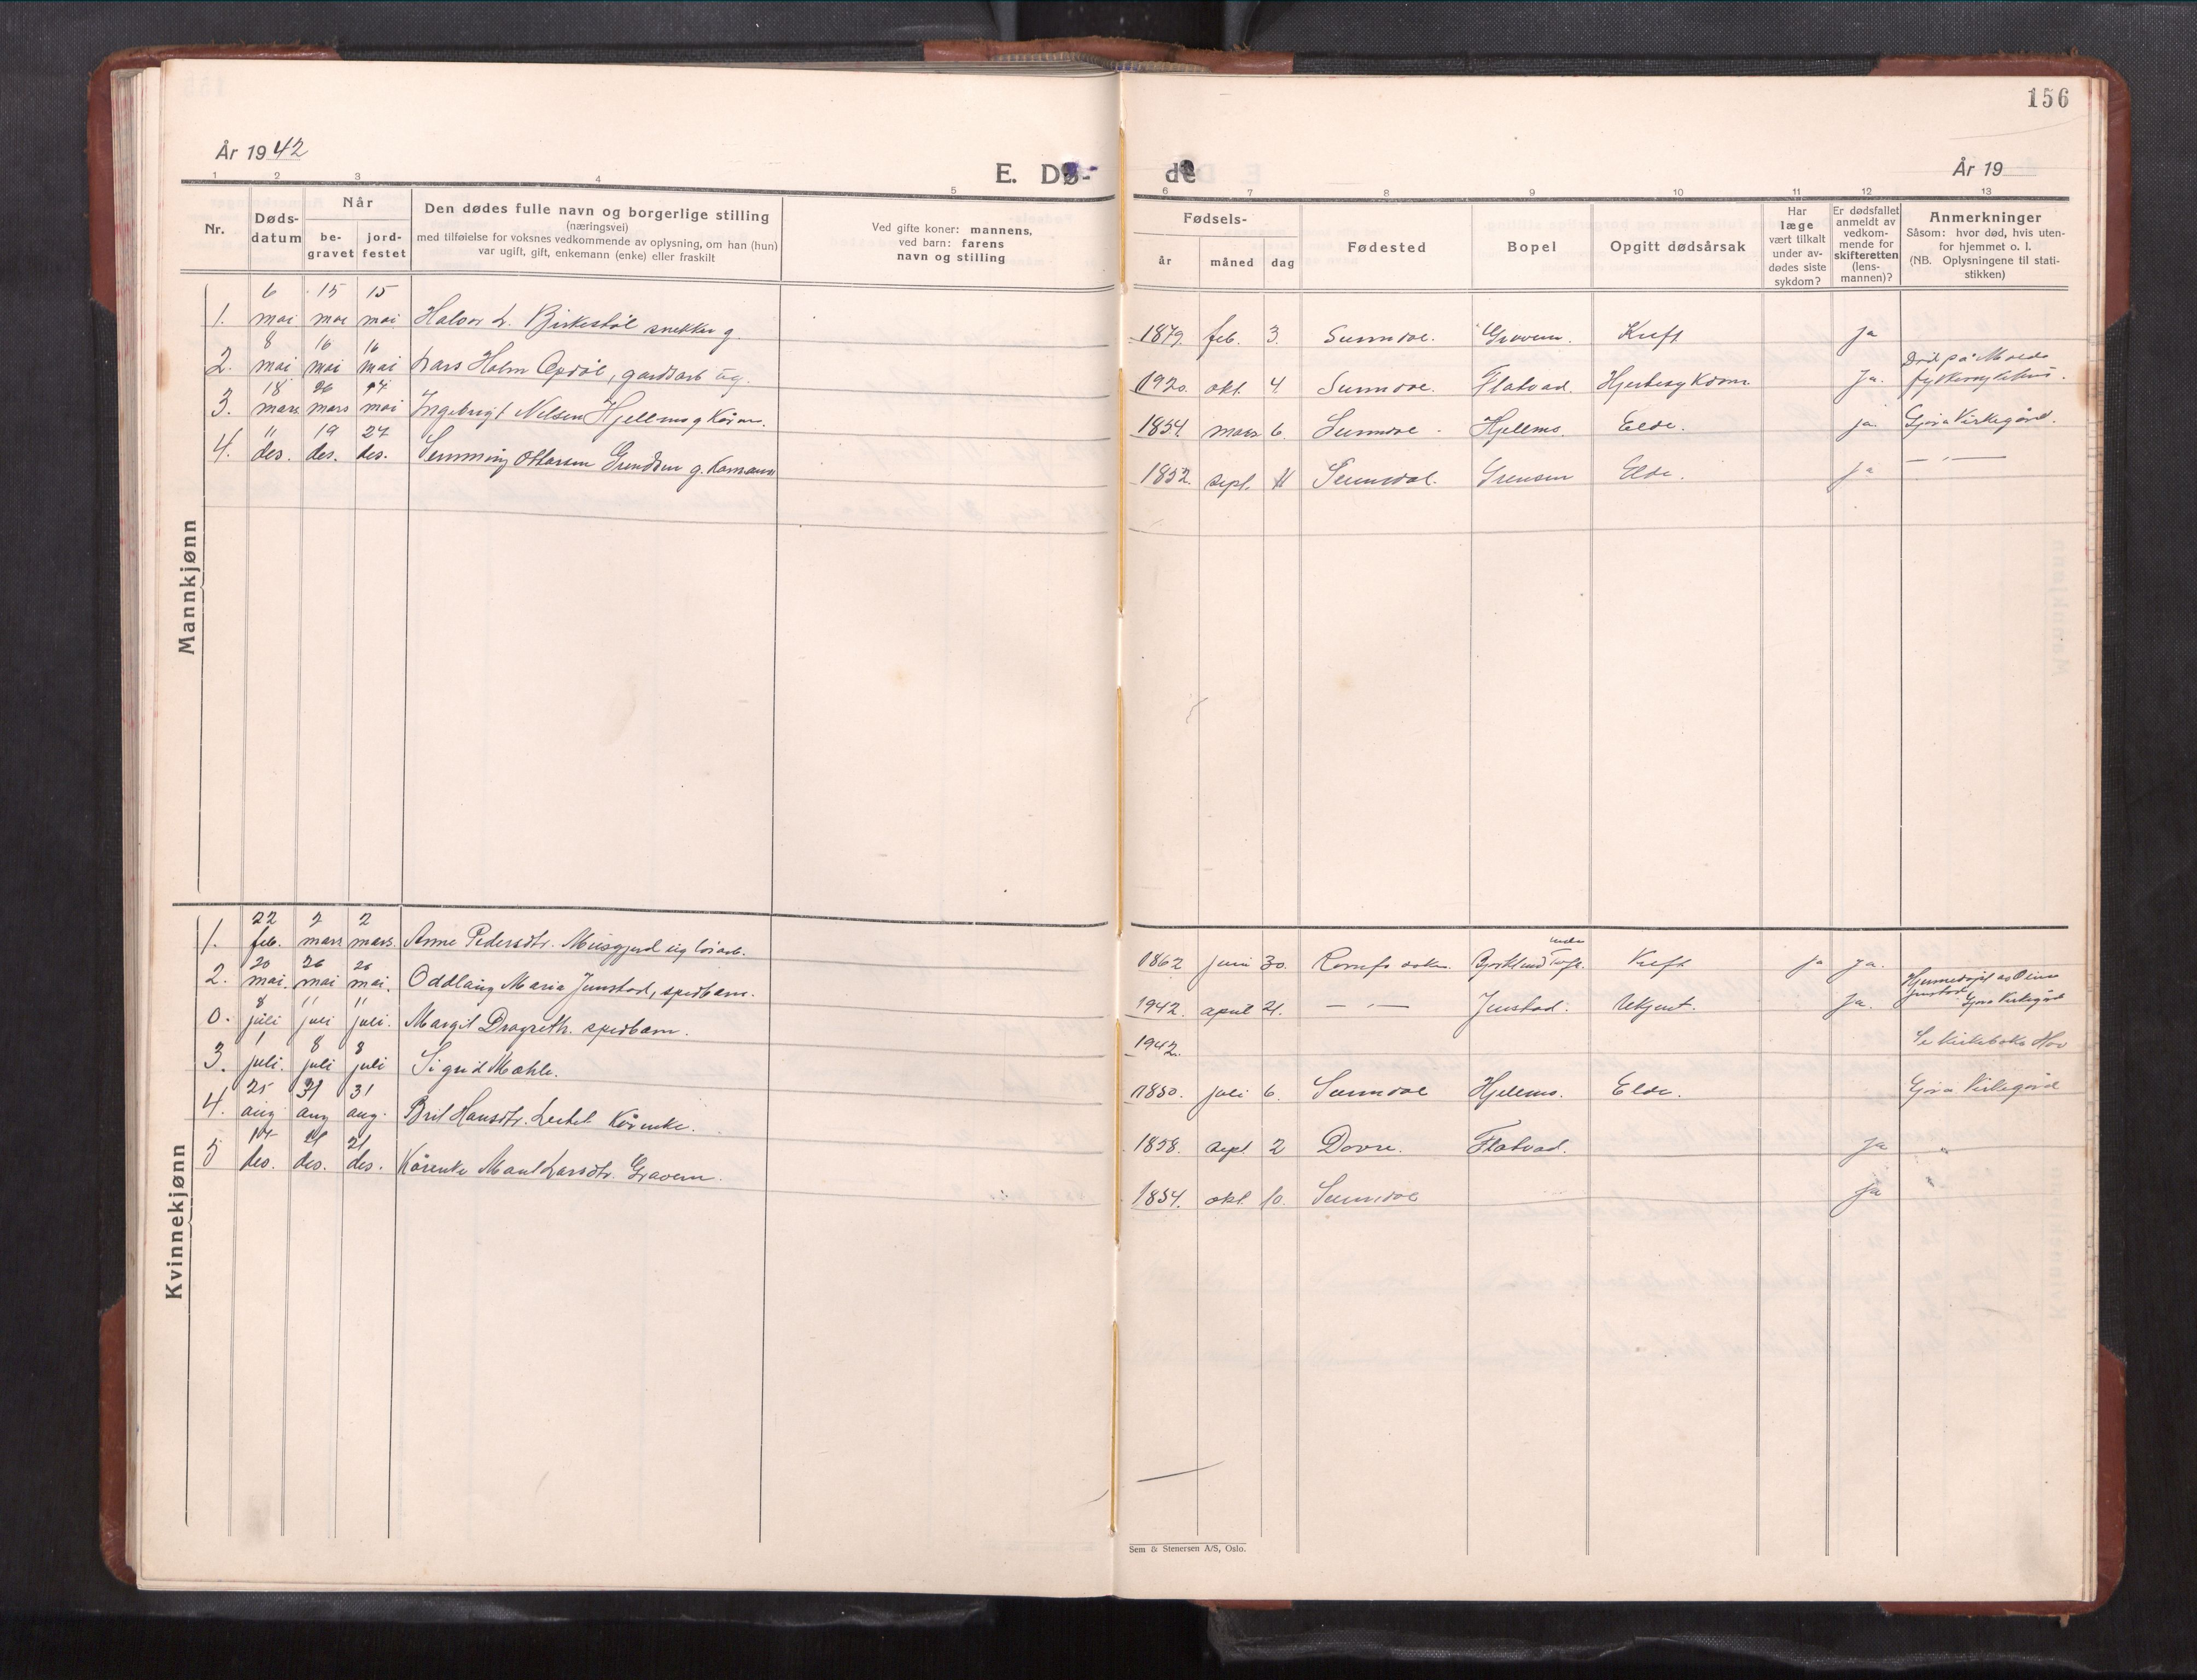 156
År 1942
E. Dø-
de
År 19
1 2 3 4 5 6 7 8 9 10 11 12 13
Nr.
Døds-
datum
Når
be-
gravet
jord-
festet
Den dødes fulle navn og borgerlige stilling
(næringsvei)
med tilføielse for voksnes vedkommende av oplysning, om han (hun)
var ugift, gift, enkemann (enke) eller fraskilt
Ved gifte koner: mannens,
ved barn: farens
navn og stilling
Fødsels-
år
måned
dag
Fødested
Bopel
Opgitt dødsårsak
Har
læge
vært tilkalt
under av-
dødes siste
sykdom?
Er dødsfallet
anmeldt av
vedkom-
mende for
skifteretten
(lens-
mannen)?
Anmerkninger
Såsom: hvor død, hvis uten-
for hjemmet o. l.
(NB. Oplysningene til stati-
stikken)
Mannkjønn
1. 6 mai 15 mai 15 mai Halvor L. Birkestøl snekker g. 1879. feb. 3. Sunndal. Gravem. Kreft ja
2. 8 mai 16 mai 16 mai Lars Holm Opdøl, gardsarb ug. 1920. okt. 4. Sunndal. Flatvad. Ja. Død på Molde fylkessykehus.
3. 18 mars 26 mars 14 mai Ingebrigt Nilsen Hjellmo g. 1854. mars 6. Sunndal. Hjellmo. Elde. ja. Gjøra Kirkegård.
4. 11 des. 19 des. 27 des. Semming Ottarsen g. 1852. sept. 11 Sunndal. Elde. ja — " —
Kvinnekjønn
1. 22 feb. 2 mars 2 mars. Anne Pedersdtr. Musgjerd ug 1862 juni 30. Kreft ja ja.
2. 20 mai 26 mai 26 mai. Oddlaug Maria Jenstad, spedbarn. 1942. april 21. — " — Jenstad. Ukjent. Ja. Gjøra Kirkegård
0. 8 juli 11 juli 11 juli. Margit spedbarn. 1942. Se kirkeboka Hov
3. 1 juli. 8 juli 8 juli Sigrid Mæhle. 1850. juli 6. Sunndal Hjellmo. Elde. Gjøra Kirkegård
4. 25 aug 31 aug 31 aug. Brit Hansdtr. 1858. sept. 2 Dovre. Flatvad. ja "
5 14 des. 21 des. 21 des. Kårenke Larsdtr. Gravem. 1854. okt. 10. Sunndal ja
Sem & Stenersen A/S, Oslo.